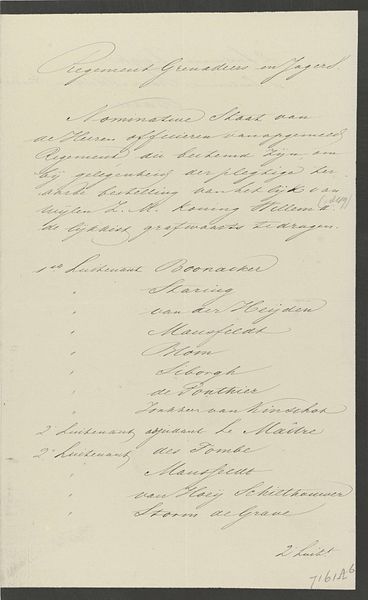 Regement Grenadiers en Jagers
Nominative Staat van
de Heeren officieren van opgemeld
Regement die bestemd zijn, om
bij gelegenheid der plegtige ter
aarde bestelling van het lijk van
wijlen Z. M. Koning Willem 2 (1849)
de lijkkist grafwaarts te dragen.
1ste Luitenant Boonacker
" Staring
" van der Heijden
" Mansfeldt
" Blom
" Seborgh
" de Ponthier
" Jonkheer van Kinschot
2e Luitenant adjudant Le Maître
2e Luitenant des Tombe
" Mansfeldt
" van Hoey Schilthouwer
" Storm de Grave
2 Luit
7161A6